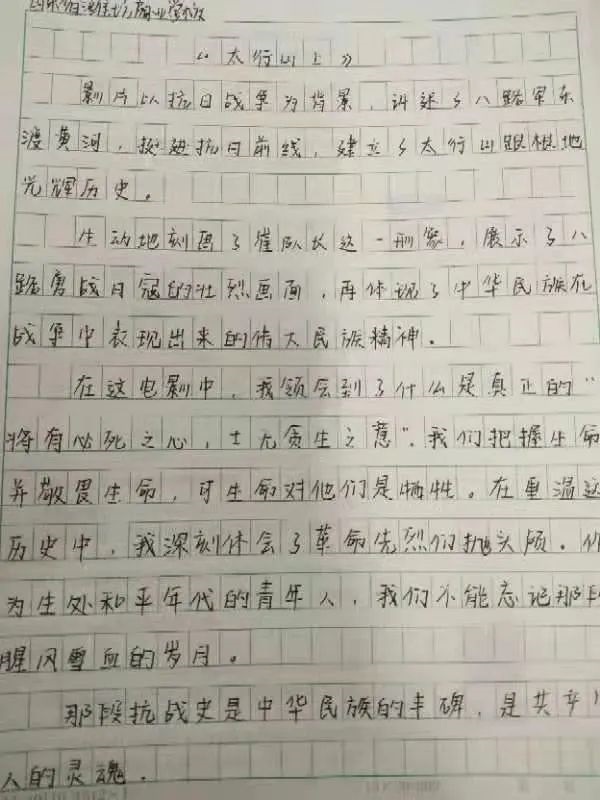 《太行山上》
影片以抗日战争为背景，讲述了八路军东
渡黄河，挺进抗日前线，建立了太行山跟根地
光辉历史。
生动地刻画了崔队长这一形象，展示了八
路勇战日寇的壮烈画面，再体现了中华民族在
战争中表现出来的伟大民族精神。
在这电影中，我领会到了什么是真正的“
将有必死之心，士无质生之意”。我们把握生命
并敬畏生命，可生命对他们是牺牲。在重温这
历史中，我深刻体会了革命先烈们抛头颅。
为生处和平年代的青年人，我们不能忘记那段
腥风雪血的岁月。
那段抗战史是中华民族的丰碑，是共产
人的灵魂．